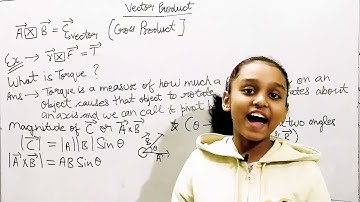 Vector Product
A⃗ ⊠ B⃗ = C⃗ vector [Cross Product]
Ex → r⃗ ⊠ F⃗ = T⃗
What is Torque ?
Ans → Torque is a measure of how much a on an
object causes that object to rotate rotates about
an axis and we can call it pivot
Magnitude of C⃗ or A⃗×B⃗ & (θ → two angles
|C⃗| = |A||B| Sinθ
|A⃗×B⃗| = AB Sinθ
B⃗ θ A⃗